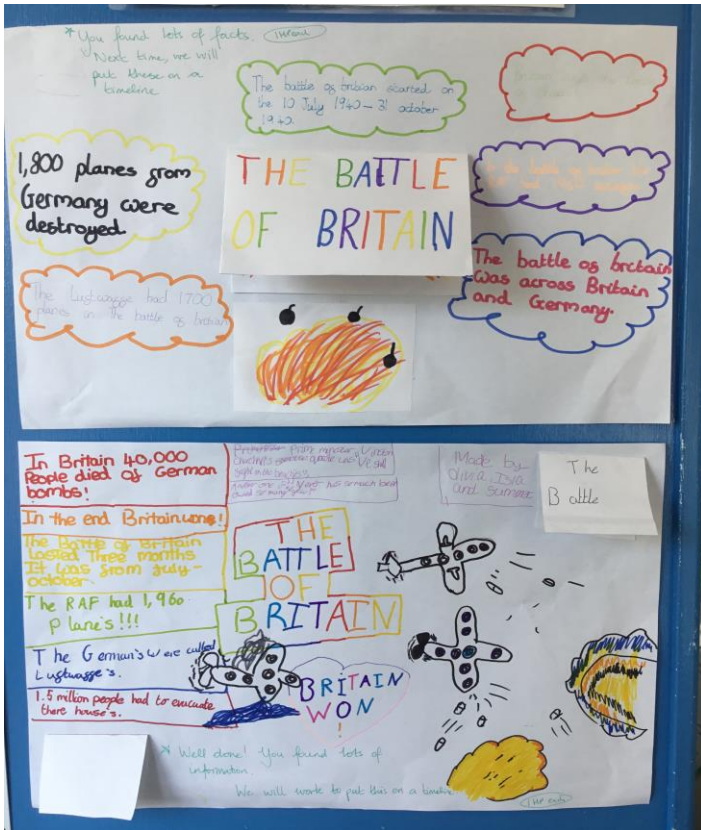 * You found lots of facts.
Next time, we will
put these on a
timeline
The battle of britian started on
the 10 July 1940 – 31 october
1940.
1,800 planes from
Germany were
destroyed.
THE BATTLE
OF BRITAIN
The battle of britain
was across Britain
and Germany.
The Luftwaffe had 1700
planes in The battle of
In Britain 40,000
People died of German
bombs!
In the end Britain won!
The Battle of Britain
Lasted Three months
It was from july-
october.
The RAF had 1,960
Plane's!!!
The German's were called
Luftwaffe's.
1.5 million people had to evacuate
there house's.
Made by
olivia, Isla
and summer
The
Battle
THE
BATTLE
OF
BRITAIN
BRITAIN
WON
!
* Well done! You found lots of
information.
We will work to put this on a timeline